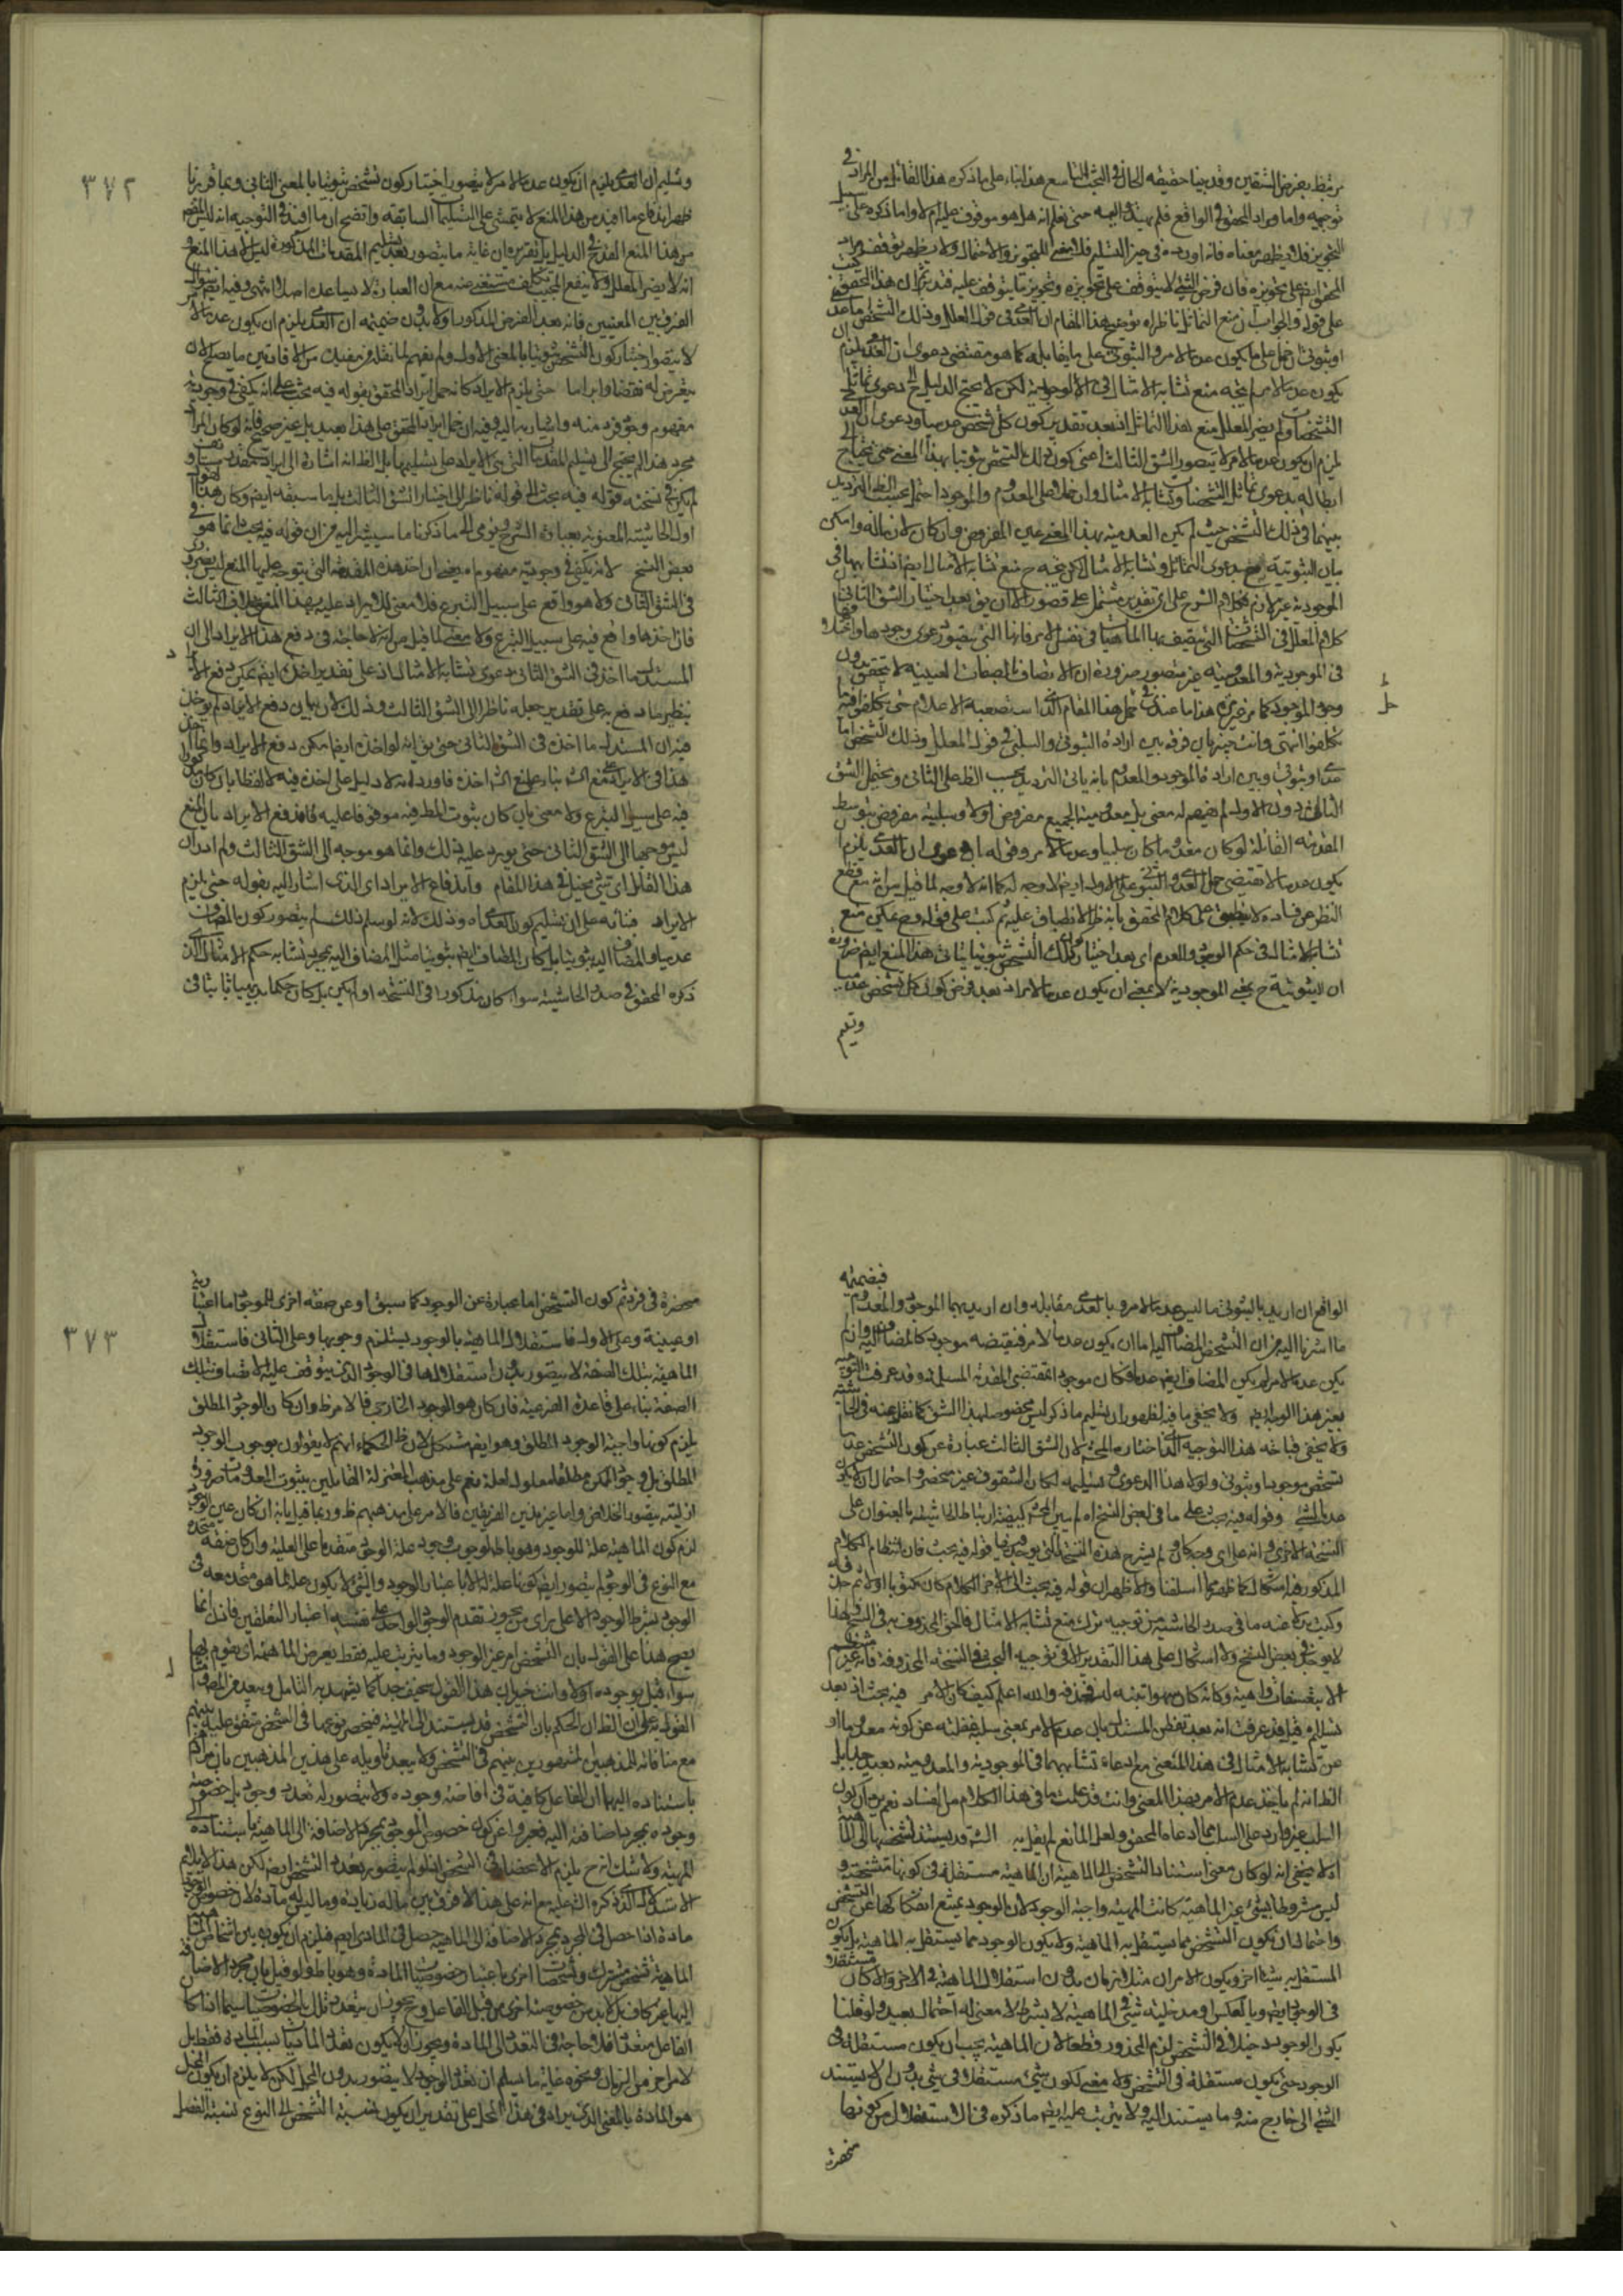 يرتبط بفرض الشقين وقد بينا حقيقة الحال في البحث التاسع هذا بناء على ما ذكره هذا القائل من المراد في
توجيهه واما مراد المحقق في الواقع فلم يهتد اليه حتى نعلم انه هل هو موقوف عليه ام لا واما ذكره على سبيل
التجويز فلا يظهر معناه فانه اورده في حيز التسليم فلا معنى للتجويز والاحتمال ولا يظهر توقف مراد
المحقق ايض على تجويزه فان فرض الشئ لا يتوقف على تجويزه وتجويز ما يتوقف عليه
على قوله والجواب ان منع التماثل ناظر اه توضيح هذا المقام ان العدمي في قول المعلل وذلك التشخص اما عدمي
او ثبوتي ان حمل على ما يكون عدما لامر والثبوتي على ما يقابله كما هو مقتضى دعوى ان العدمي يلزم ان
يكون عدما لامر لم يتجه منع تشابه الامثال في الوجودية لكن لا يحتاج الدليل الى دعوى تماثل
التشخصات ولم يضر المعلل منع هذا التماثل بعد تقدير كون كل تشخص عدميا ودعوى ان العدمي
يلزم ان يكون عدما لامر لا يتصور الشق الثالث اعني كون ذلك التشخص ثبوتيا بهذا المعنى حتى يحتاج الى
ابطاله بدعوى تماثل التشخصات وتشابه الامثال وان حملا على المعدوم والموجود احتمل بحسب الظ الترديد
بينهما في ذلك التشخص حيث لم يكن العدمية بهذا المعنى عين المفروض وان كان لازما له وامكن
بيان الثبوتية بدعوى التماثل وتشابه الامثال لكن يتجه ح منع تشابه الامثال
الموجودية غير لازم فكلام الشرح على اي تقدير مشتمل على قصور الا ان يق بعد اختيار الشق الثاني
كلام المعلل في التشخصات التي يتصف بها الماهيات في نفس الامر فانها التي يتصور دعوى وجودها
في الموجودية والمعدومية غير متصور ضرورة ان الاتصاف بالصفات العينية لا يتحقق بدون
وجود الموجود كما مر غير مرة هذا ما عندي في حل هذا المقام الذي استصعبه الاعلام حتى تكلفوا فيه ما
تكلفوا انتهى وانت خبير بان فرقه بين ارادة الثبوتي والسلبي في قول المعلل وذلك التشخص اما
عدمي او ثبوتي وبين ارادة الموجود والمعدوم بانه يأبى الترديد بحسب الظ على الثاني ويحتمل الشق
الثالث دون الاول لم يفهم له معنى بل معدومية الجميع مفروض اولا وسلبية مفروض بتوسط
المقدمة القائلة لو كان معدوما كان سلبيا وعدما لامر وقوله ان دعوى ان العدمي يلزم ان
يكون عدما لا تقتضي حمل العدمي والثبوتي على الاول ايض لا وجه له كما انه لا وجه لما قيل من انه مع قطع
النظر عن فساده لا ينطبق على كلام المحقق بانه ظ الانطباق عليه ثم كتب على قوله ح يمكن منع
تشابه الامثال في حكم الوجود والعدم اي بعد اختيار كون ذلك التشخص ثبوتيا يتأتى هذا المنع ايض ضرورة
ان الثبوتية ح بمعنى الموجودية لا بمعنى ان يكون عدما لامر اذ بعد فرض كون كل تشخص عدميا
وتسليم
٣٧٢
وتسليم ان العدمي يلزم ان يكون عدما لامر لا يتصور اختيار كون تشخص ثبوتيا بالمعنى الثاني وبما قررنا
ظهر اندفاع ما افيد من هذا المنع لا يتمشى على التسليمات السابقة واتضح ان ما افيد في التوجيه انه ليس المقصود
من هذا المنع القدح في الدليل بل تقريره وان غاية ما يتصور بعد تسليم المقدمات المذكورة ليس هذا المنع و
انه لا يضر المعلل ولا ينفع المجيب تكلف مستغنى عنه مع ان العبارة لا يساعده اصلا انتهى وفيه ايض
الفرق بين المعنيين فانه بعد الفرض المذكور اولا بدون ضميمة ان العدمي يلزم ان يكون عدما لامر
لا يتصور اختيار كون التشخص ثبوتيا بالمعنى الاول ولم نفهم
يتعرض له نقضا وابراما حتى يلزم الايراد كانه حمل ايراد المحقق بقوله فيه بحث على انه يكفي في وجودية
مفهوم وجود فرد منه واشار به اليه وفيه ان حمل ايراد المحقق على هذا بعيد بل غير صحيح فانه لو كان المراد
مجرد هذا لم يحتج الى تسليم المقدمات التي بنى الايراد على تسليمها بل الظ انه اشارة الى ايراد
لم يكن في نسخته قوله فيه بحث الى قوله ناظر الى اختيار الشق الثالث بل ما سبقه ايض وكان هذا
اول الحاشية المعنونة بعبارة الشرح يومى الى ما ذكرنا ما سيشير اليه من ان قوله فيه بحث انما هو في
بعض النسخ لانه يكفي في وجودية مفهوم اه يعني ان اخذ هذه المقدمة التي يتوجه عليها المنع ليس بضروري
في الشق الثاني ولا هو واقع على سبيل التبرع فلا معنى للايراد عليه بهذا المنع بخلاف الثالث
فان اخذها واقع فيه على سبيل التبرع ولا معنى لما قيل من انه لا حاجة في دفع هذا الايراد الى ان
المستدل ما اخذ في الشق الثاني دعوى تشابه الامثال اذ على تقدير اخذه ايض يمكن دفع الايراد
بنظير ما دفع به على تقدير جعله ناظرا الى الشق الثالث وذلك لان بيان دفع الايراد لم يؤخذ
فيه ان المستدل ما اخذه في الشق الثاني حتى يق انه لو اخذه ايضا يمكن دفع الايراد وانما
فيه على سبيل التبرع ولا معنى بان كان ثبوت المطلوب فيه موقوفا عليه فاندفع الايراد بان المنع
ليس موجها الى الشق الثاني حتى يورد عليه ذلك وانما هو موجه الى الشق الثالث ولم ادر ان
هذا القائل اي شئ يخيل في هذا المقام واندفاع الايراد اي الذي اشار اليه بقوله حتى يلزم
الايراد فبناءه على ان تسليم كون العدمي اه وذلك لانه لو سلم ذلك لم يتصور كون المضاف
عدميا والمضاف اليه ثبوتيا بل كان المضاف ايض ثبوتيا مثل المضاف اليه بمجرد تشابه حكم الامثال الذي
ذكره المحقق في صدر الحاشية سواء كان مذكورا في النسخة او لم يكن بل كان حكما بديهيا ثابتا في
فيضمنه
الواقع ان اريد بالثبوتي ما ليس عدما لامر وبالعدمي مقابله وان اريد بهما الموجود والمعدوم
ما اشرنا اليه من ان التشخص المضاف اليه اما ان يكون عدما لامر فنقيضه موجود كالمضاف اليه وان لم
يكن عدما لامر لم يكن المضاف ايض عدميا فكان موجودا بمقتضى المقدمة المسلمة وقد عرفت التوجيه
بغير هذا الوجه ايض ولا يخفى ما فيه لظهور ان تسليم ما ذكر ليس مخصوصا بهذا الشق كما نقل عنه في الحاشية
ولا يخفى قباحة هذا التوجيه الذي اختاره المجيب لان الشق الثالث عبارة عن كون التشخص عدما
تشخص موجود او ثبوتي ولولا هذا الدعوى وتسليمه لكان الشقوق غير منحصر واحتمال ان لا يكون
عدما لشئ وقوله فيه بحث على ما في بعض النسخ اه لم يبين المحشي كيفية ارتباط الحاشية بالعنوان على
النسخة الاخرى وانه على اي وجه كان ولم يشرح هذه النسخة التي يوجد فيها قوله فيه بحث فان انتظام الكلام
المذكور فيها مشكل كما ظهر مما اسلفنا والاظهر ان قوله فيه بحث الى اخر الكلام كان مكتوبا اولا ثم حذفه
وكتب بدلا عنه ما في صدر الحاشية من توجيه ترك منع تشابه الامثال فالحق المحذوف به في النسخ ولهذا
لا يوجد في بعض النسخ ولا اشكال على هذا التقدير الا في توجيه البحث في النسخة المحذوفة فانه غير منتظم
الا بتعسفات واهية وكانه كان سهوا تنبه له فحذفه والله اعلم كيف كان الامر فيه بحث اذ بعد
تسليم قيل قد عرفت انه بعد تفطن المستدل بان عدم الامر بمعنى سلبه غفلته عن كونه معدوما او
عن تشابه الامثال في هذا المعنى مع ادعاء تشابههما في الموجودية والمعدومية بعيد جدا بل
الظ انه لم يأخذ عدم الامر بهذا المعنى وانت قد علمت ما في هذا الكلام من الفساد نعم يرد ان كون
السلب غير وارد على السلب مما ادعاه المحقق ولعل المانع لم يقل به الش قد يستند تشخصها الى الماهية
اذ لا يخفى انه لو كان معنى استناد التشخص الى الماهية ان الماهية مستقلة في كونها متشخصة و
ليس مشروطا بشئ غير الماهية كانت المهية واجبة الوجود لان الوجود يمتنع انفكاكها عن التشخص
واحتمال ان يكون التشخص مما يستقل به الماهية ولا يكون الوجود مما يستقل به الماهية بل يكون
المستقل به شيئا اخر ويكون الامران متلازمان بدون استقلال الماهية في الاخر والا كان مستقلا
في الوجود ايض وبالعكس او مدخلية شئ في الماهية لا بشرط لا معنى له احتمال بعيد ولو قلنا
بكون الوجود دخيلا في التشخص لزم المحذور قطعا لان الماهية يجب ان يكون مستقلة في
الوجود حتى يكون مستقلة في التشخص ولا معنى لكون شئ مستقلا في شئ بدون ان لا يستند
الشئ الى خارج منه وما يستند اليه ولا يترتب عليه ايض ما ذكره في الاستقلال من كونها
منحصرة
٣٧٣
منحصرة في فرد ثم كون التشخص اما عبارة عن الوجود كما سبق او عن صفة اخرى للموجود اما اعتبارية
او عينية وعلى الاول فاستقلال الماهية بالوجود يستلزم وجوبها وعلى الثاني فاستقلال
الماهية بتلك الصفة لا يتصور بدون استقلالها في الوجود الذي يتوقف عليه الاتصاف بتلك
الصفة بناء على قاعدة الفرعية فان كان هو الوجود الخارجي فالامر ظ وان كان الوجود المطلق
يلزم كونها واجبة الوجود المطلق وهو ايض مشكل لان ظ الحكماء انهم لا يقولون بوجوب الوجود
المطلق بل وجود الممكن مطلقا معلول لعلة نعم على مذهب المعتزلة القائلين بثبوت المعدومات ضرورة
ازلية يتصور الخلاص واما غير هذين الفريقين فالامر على مذهبهم ظ وربما قيل بانه ان كان عين الوجود
لزم كون الماهية علة للوجود وهو باطل لوجوب وجود علة الوجود متقدما على العلية وان كان صفة متحدة
مع النوع في الوجود لم يتصور ايض كونها علة له الا باعتبار الوجود والشئ لا يكون علة لما هو متحد معه في
الوجود بشرط الوجود الا على رأي من يجوز تقدم الوجود الواحد على نفسه اعتبار التعلقين فانه انما
يصح هذا على القول بان التشخص امر غير الوجود وما يترتب عليه فقط يعرض الماهية اي يقوم بها
سواء قيل بوجوده او لا وانت خبير بان هذا القول سخيف جدا كما يشهد به التامل
القول به على ان الظ ان الحكم بان التشخص قد يستند الى المهية فينحصر نوعها في الشخص متفق عليه بينهم
مع منافاته للمذهبين المشهورين بينهم في التشخص ولا يبعد تاويله على هذين المذهبين بان مرادهم
باستناده اليها ان الفاعل كافية في افاضة وجوده ولا يتصور له تعدد وجود بل خصوصية
وجوده بمجرد اضافته اليه فعبروا عن كون خصوص الوجود بمجرد الاضافة الى الماهية باستناده الى
المهية ولا شك انه ح يلزم الانحصار في الشخص اذ لو لم يتصور تعدد التشخص ايض لكن هذا لا يلائم
الاشكال الذي ذكره الش عليه مع انه على هذا لا فرق بين ما له زيادة وما ليس له مادة لان خصوص الوجود
مادة اذا حصل في المجرد بمجرد الاضافة الى الماهية حصل في المادي ايض فلزم ان يكون بين اشخاص
الماهية تشخص مشترك وتشخصات اخرى باعتبار خصوصيات المادة وهو باطل ولو قيل بان مجرد الاضافة
اليها غير كاف بل لابد من خصوصية اخرى من قبل الفاعل وح يجوز ان يتعدد تلك الخصوصيات سيما اذا كان
الفاعل متعددا فلا حاجة في التعدد الى المادة ويجوز ان لا يكون تعدد الماديات بسبب المادة فقط بل
لامر اخر من الزمان ونحوه غاية ما يسلم ان تعدد الوجود لا يتصور بدون المحل لكن لا يلزم ان يكون المحل
هو المادة بالمعنى الذي يراد في هذا المحل على تقدير ان يكون نسبة التشخص الى النوع كنسبة الفصل